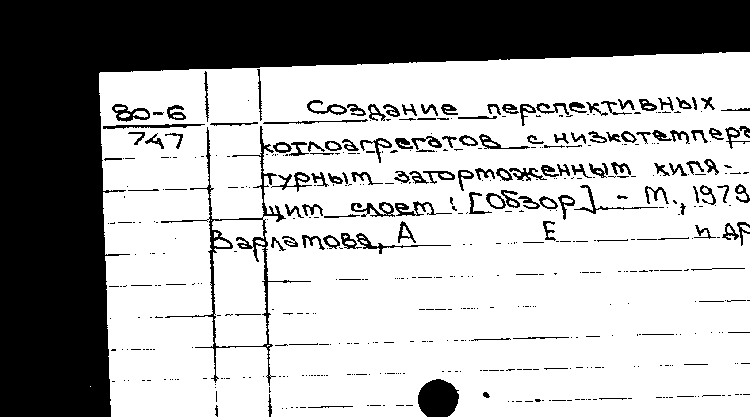 80-6 Создание перспективных
747 котлоагрегатов с низкотемпера
турным заторможенным кипя-
щим слоем : [Обзор]. - М., 1979
Варламова, А Е и др